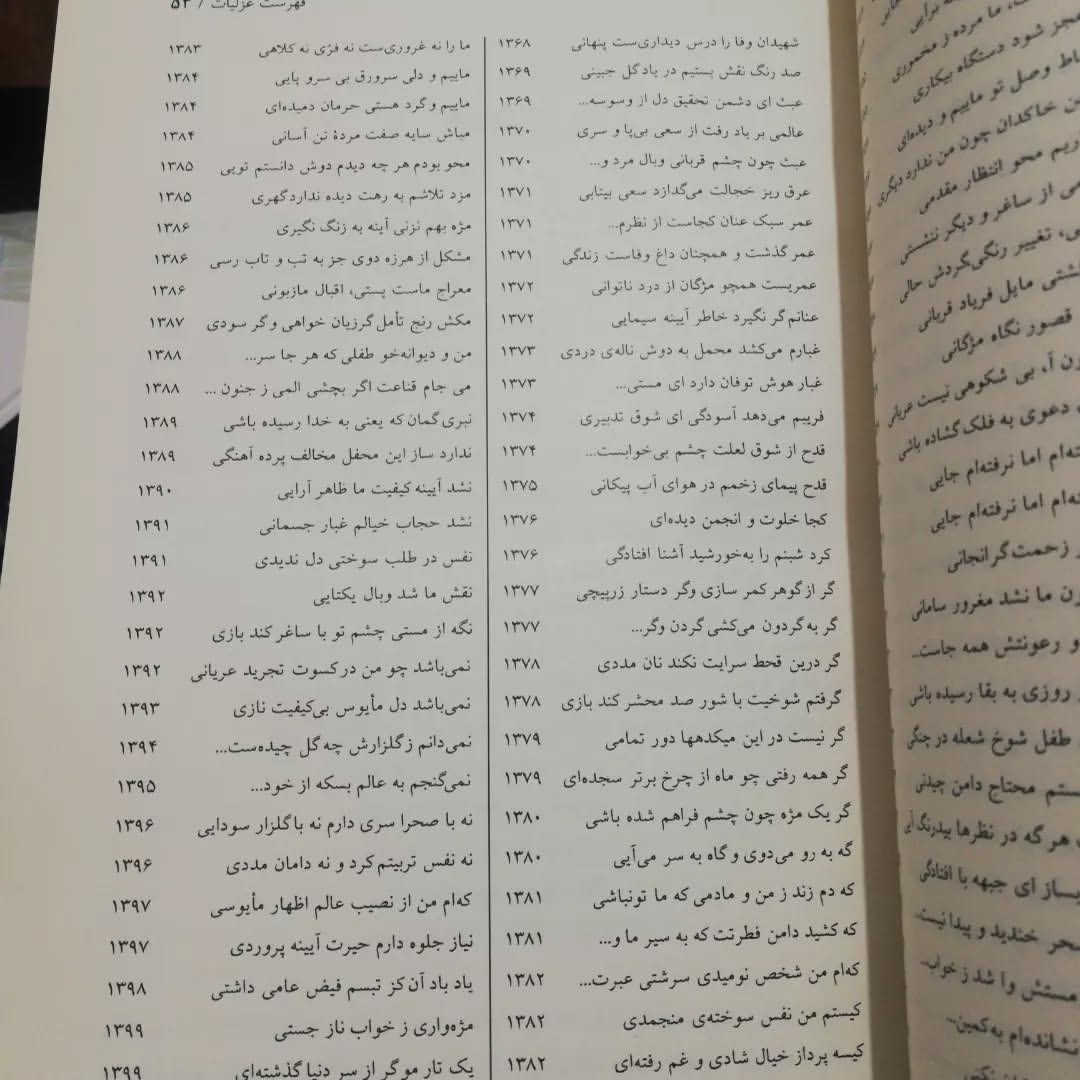 فهرست غزلیات / ۵۳
شهیدان وفا را درس دیداری‌ست پنهانی ۱۳۶۸
صد رنگ نقش بستیم در یاد گل جبینی ۱۳۶۹
عبث ای دشمن تحقیق دل از وسوسه... ۱۳۶۹
عالمی بر باد رفت از سعی بی‌پا و سری ۱۳۷۰
عبث چون چشم قربانی وبال مرد و... ۱۳۷۰
عرق ریز خجالت می‌گدازد سعی بیتابی ۱۳۷۱
عمر سبک عنان کجاست از نظرم... ۱۳۷۱
عمر گذشت و همچنان داغ وفاست زندگی ۱۳۷۱
عمریست همچو مژگان از درد ناتوانی ۱۳۷۲
عنانم گر نگیرد خاطر آیینه سیمایی ۱۳۷۲
غبارم می‌کشد محمل به دوش ناله‌ی دردی ۱۳۷۳
غبار هوش توفان دارد ای مستی... ۱۳۷۳
فریبم می‌دهد آسودگی ای شوق تدبیری ۱۳۷۴
قدح از شوق لعلت چشم بی‌خوابست... ۱۳۷۴
قدح پیمای زخمم در هوای آب پیکانی ۱۳۷۵
کجا خلوت و انجمن دیده‌ای ۱۳۷۶
کرد شبنم را به‌خورشید آشنا افتادگی ۱۳۷۶
گر از گوهر کمر سازی وگر دستار زرپیچی ۱۳۷۷
گر به گردون می‌کشی گردن وگر... ۱۳۷۷
گر درین قحط سرایت نکند نان مددی ۱۳۷۸
گرفتم شوخیت با شور صد محشر کند بازی ۱۳۷۸
گر نیست در این میکدهها دور تمامی ۱۳۷۹
گر همه رفتی چو ماه از چرخ برتر سجده‌ای ۱۳۷۹
گر یک مژه چون چشم فراهم شده باشی ۱۳۸۰
گه به رو می‌دوی و گاه به سر می‌آیی ۱۳۸۰
که دم زند ز من و مادمی که ما تونباشی ۱۳۸۱
که کشید دامن فطرتت که به سیر ما و... ۱۳۸۱
که‌ام من شخص نومیدی سرشتی عبرت... ۱۳۸۲
کیستم من نفس سوخته‌ی منجمدی ۱۳۸۲
کیسه پرداز خیال شادی و غم رفته‌ای ۱۳۸۲
ما را نه غروری‌ست نه فرّی نه کلاهی ۱۳۸۳
ماییم و دلی سرورق بی سرو پایی ۱۳۸۴
ماییم و گرد هستی حرمان دمیده‌ای ۱۳۸۴
مباش سایه صفت مردهٔ تن آسانی ۱۳۸۴
محو بودم هر چه دیدم دوش دانستم تویی ۱۳۸۵
مزد تلاشم به رهت دیده ندارد گهری ۱۳۸۵
مژه بهم نزنی آینه به زنگ نگیری ۱۳۸۶
مشکل از هرزه دوی جز به تب و تاب رسی ۱۳۸۶
معراج ماست پستی، اقبال مازبونی ۱۳۸۶
مکش رنج تأمل گرزیان خواهی وگر سودی ۱۳۸۷
من و دیوانه‌خو طفلی که هر جا سر... ۱۳۸۸
می جام قناعت اگر بچشی المی ز جنون ... ۱۳۸۸
نبری گمان که یعنی به خدا رسیده باشی ۱۳۸۹
ندارد ساز این محفل مخالف پرده آهنگی ۱۳۸۹
نشد آیینه کیفیت ما ظاهر آرایی ۱۳۹۰
نشد حجاب خیالم غبار جسمانی ۱۳۹۱
نفس در طلب سوختی دل ندیدی ۱۳۹۱
نقش ما شد وبال یکتایی ۱۳۹۲
نگه از مستی چشم تو با ساغر کند بازی ۱۳۹۲
نمی‌باشد چو من در کسوت تجرید عریانی ۱۳۹۲
نمی‌باشد دل مأیوس بی‌کیفیت نازی ۱۳۹۳
نمی‌دانم ز گلزارش چه گل چیده‌ست... ۱۳۹۴
نمی‌گنجم به عالم بسکه از خود... ۱۳۹۵
نه با صحرا سری دارم نه باگلزار سودایی ۱۳۹۶
نه نفس تربیتم کرد و نه دامان مددی ۱۳۹۶
که‌ام من از نصیب عالم اظهار مأیوسی ۱۳۹۷
نیاز جلوه دارم حیرت آیینه پروردی ۱۳۹۷
یاد باد آن کز تبسم فیض عامی داشتی ۱۳۹۸
مژه‌واری ز خواب ناز جستی ۱۳۹۹
یک تار مو گر از سر دنیا گذشته‌ای ۱۳۹۹
ما مرده ز مخموری
عجز شود دستگاه بیکاری
وصل تو ماییم و دیده‌ای
خاکدان چون من ندارد دیگری
محو انتظار مقدمی
از ساغر و دیگر ننشستی
تغییر رنگی گردش حالی
مایل فریاد قربانی
قصور نگاه مژگانی
آ، بی شکوهی نیست عریانی
دعوی به فلک گشاده باشی
اما نرفته‌ام جایی
اما نرفته‌ام جایی
زحمت گرانجانی
ما نشد مغرور سامانی
و رعونتش همه جاست...
روزی به بقا رسیده باشی
طفل شوخ شعله در چنگی
محتاج دامن چیدنی
هر گه در نظرها بیدرنگ آیی
ای جبهه با افتادگی
خندید و پیدا نیست...
مستش وا شد ز خواب...
نشانده‌ام به کمین...